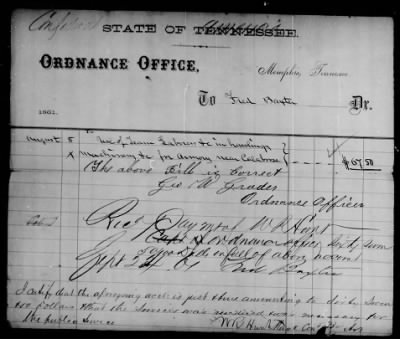 Confederate
STATE OF TENNESSEE.
ORDNANCE OFFICE,
Memphis, Tennessee
To Fred Baxter Dr.
1861.
August 8 To use of Team Labor &c in hauling
machinery &c for Armory near
$67.50
The above Bill is Correct
Geo W Grader
Ordnance Officer
Recd Payment W R Hunt
Capt & Ordnance officer Sixty seven
50 dollars in full of above account
Sept 24 61 Fred Baxter
I certify that the foregoing acct is just & true amounting to sixty seven
50 Dollars & that the service was rendered & was necessary for
the public service
W R Hunt